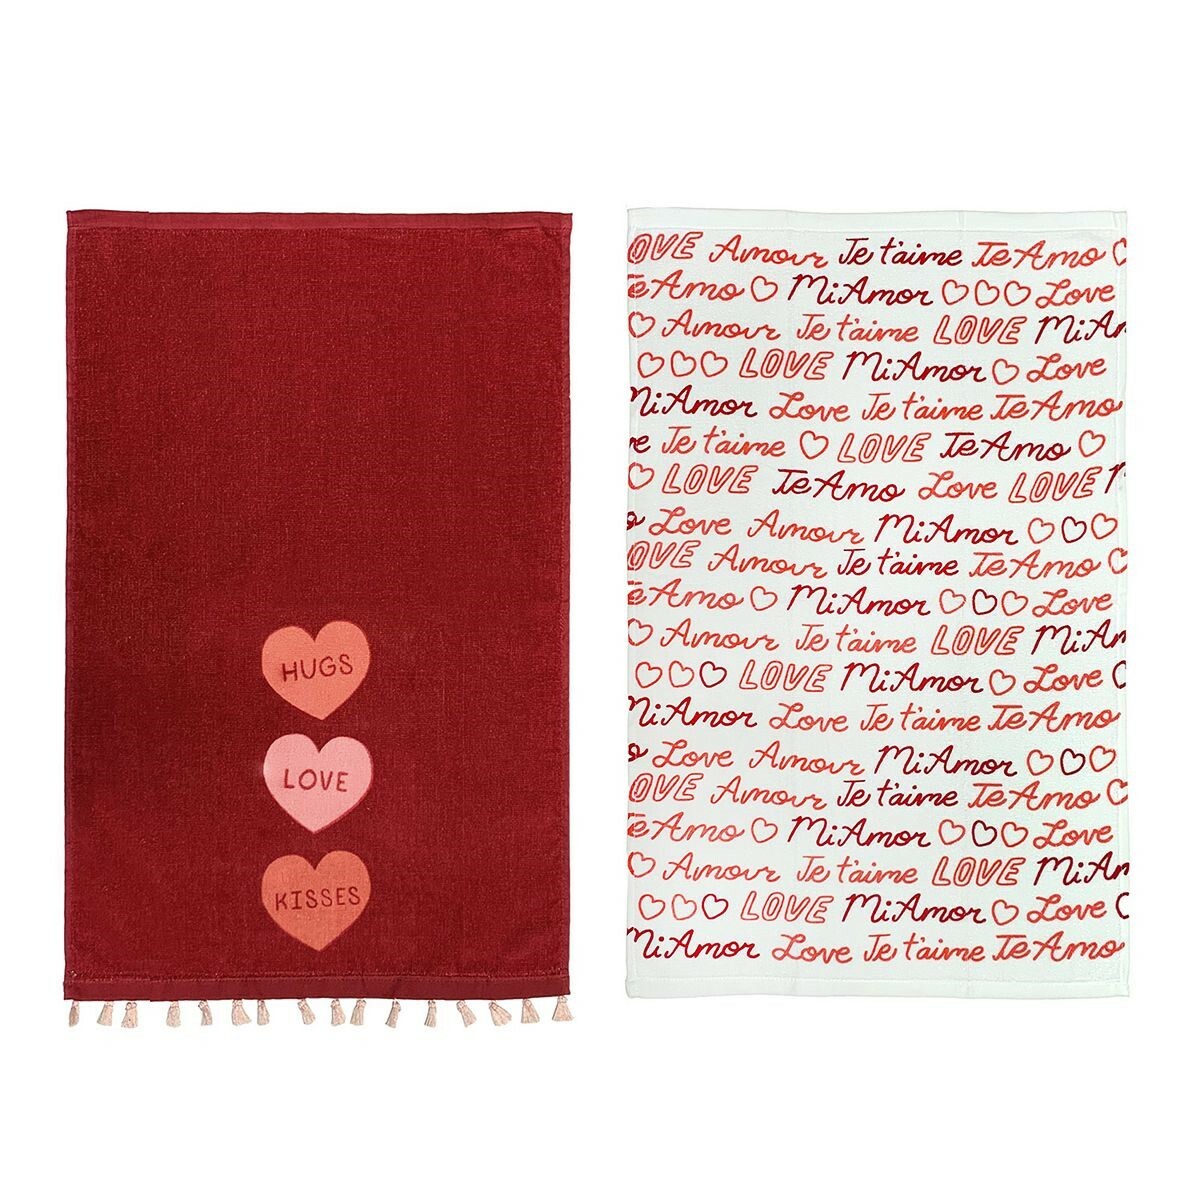 HUGS
LOVE
KISSES
OVE Amour Je t'aime Te Amo
Te Amo Mi Amor Love
Amour Je t'aime LOVE Mi Am
LOVE Mi Amor Love
Mi Amor Love Je t'aime Te Amo
ve Je t'aime LOVE Te Amo
LOVE Te Amo Love LOVE M
Love Amour Mi Amor
OVE Amour Je t'aime Te Amo
Te Amo Mi Amor Love
Amour Je t'aime LOVE Mi Am
LOVE Mi Amor Love
Mi Amor Love Je t'aime Te Amo
Love Amour Mi Amor
OVE Amour Je t'aime Te Amo
Te Amo Mi Amor Love
Amour Je t'aime LOVE Mi Am
LOVE Mi Amor Love
Mi Amor Love Je t'aime Te Amo